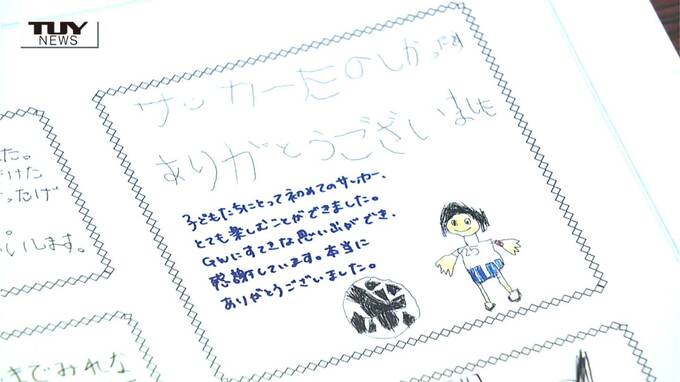 TUY
NEWS
サッカーたのしかったよ
ありがとうございました
子どもたちにとって初めてのサッカー、
とても楽しむことができました。
GWにすてきな思い出ができ、
感謝しています。本当に
ありがとうございました。
25
た。
けた
ったげ
いします。
までみれな